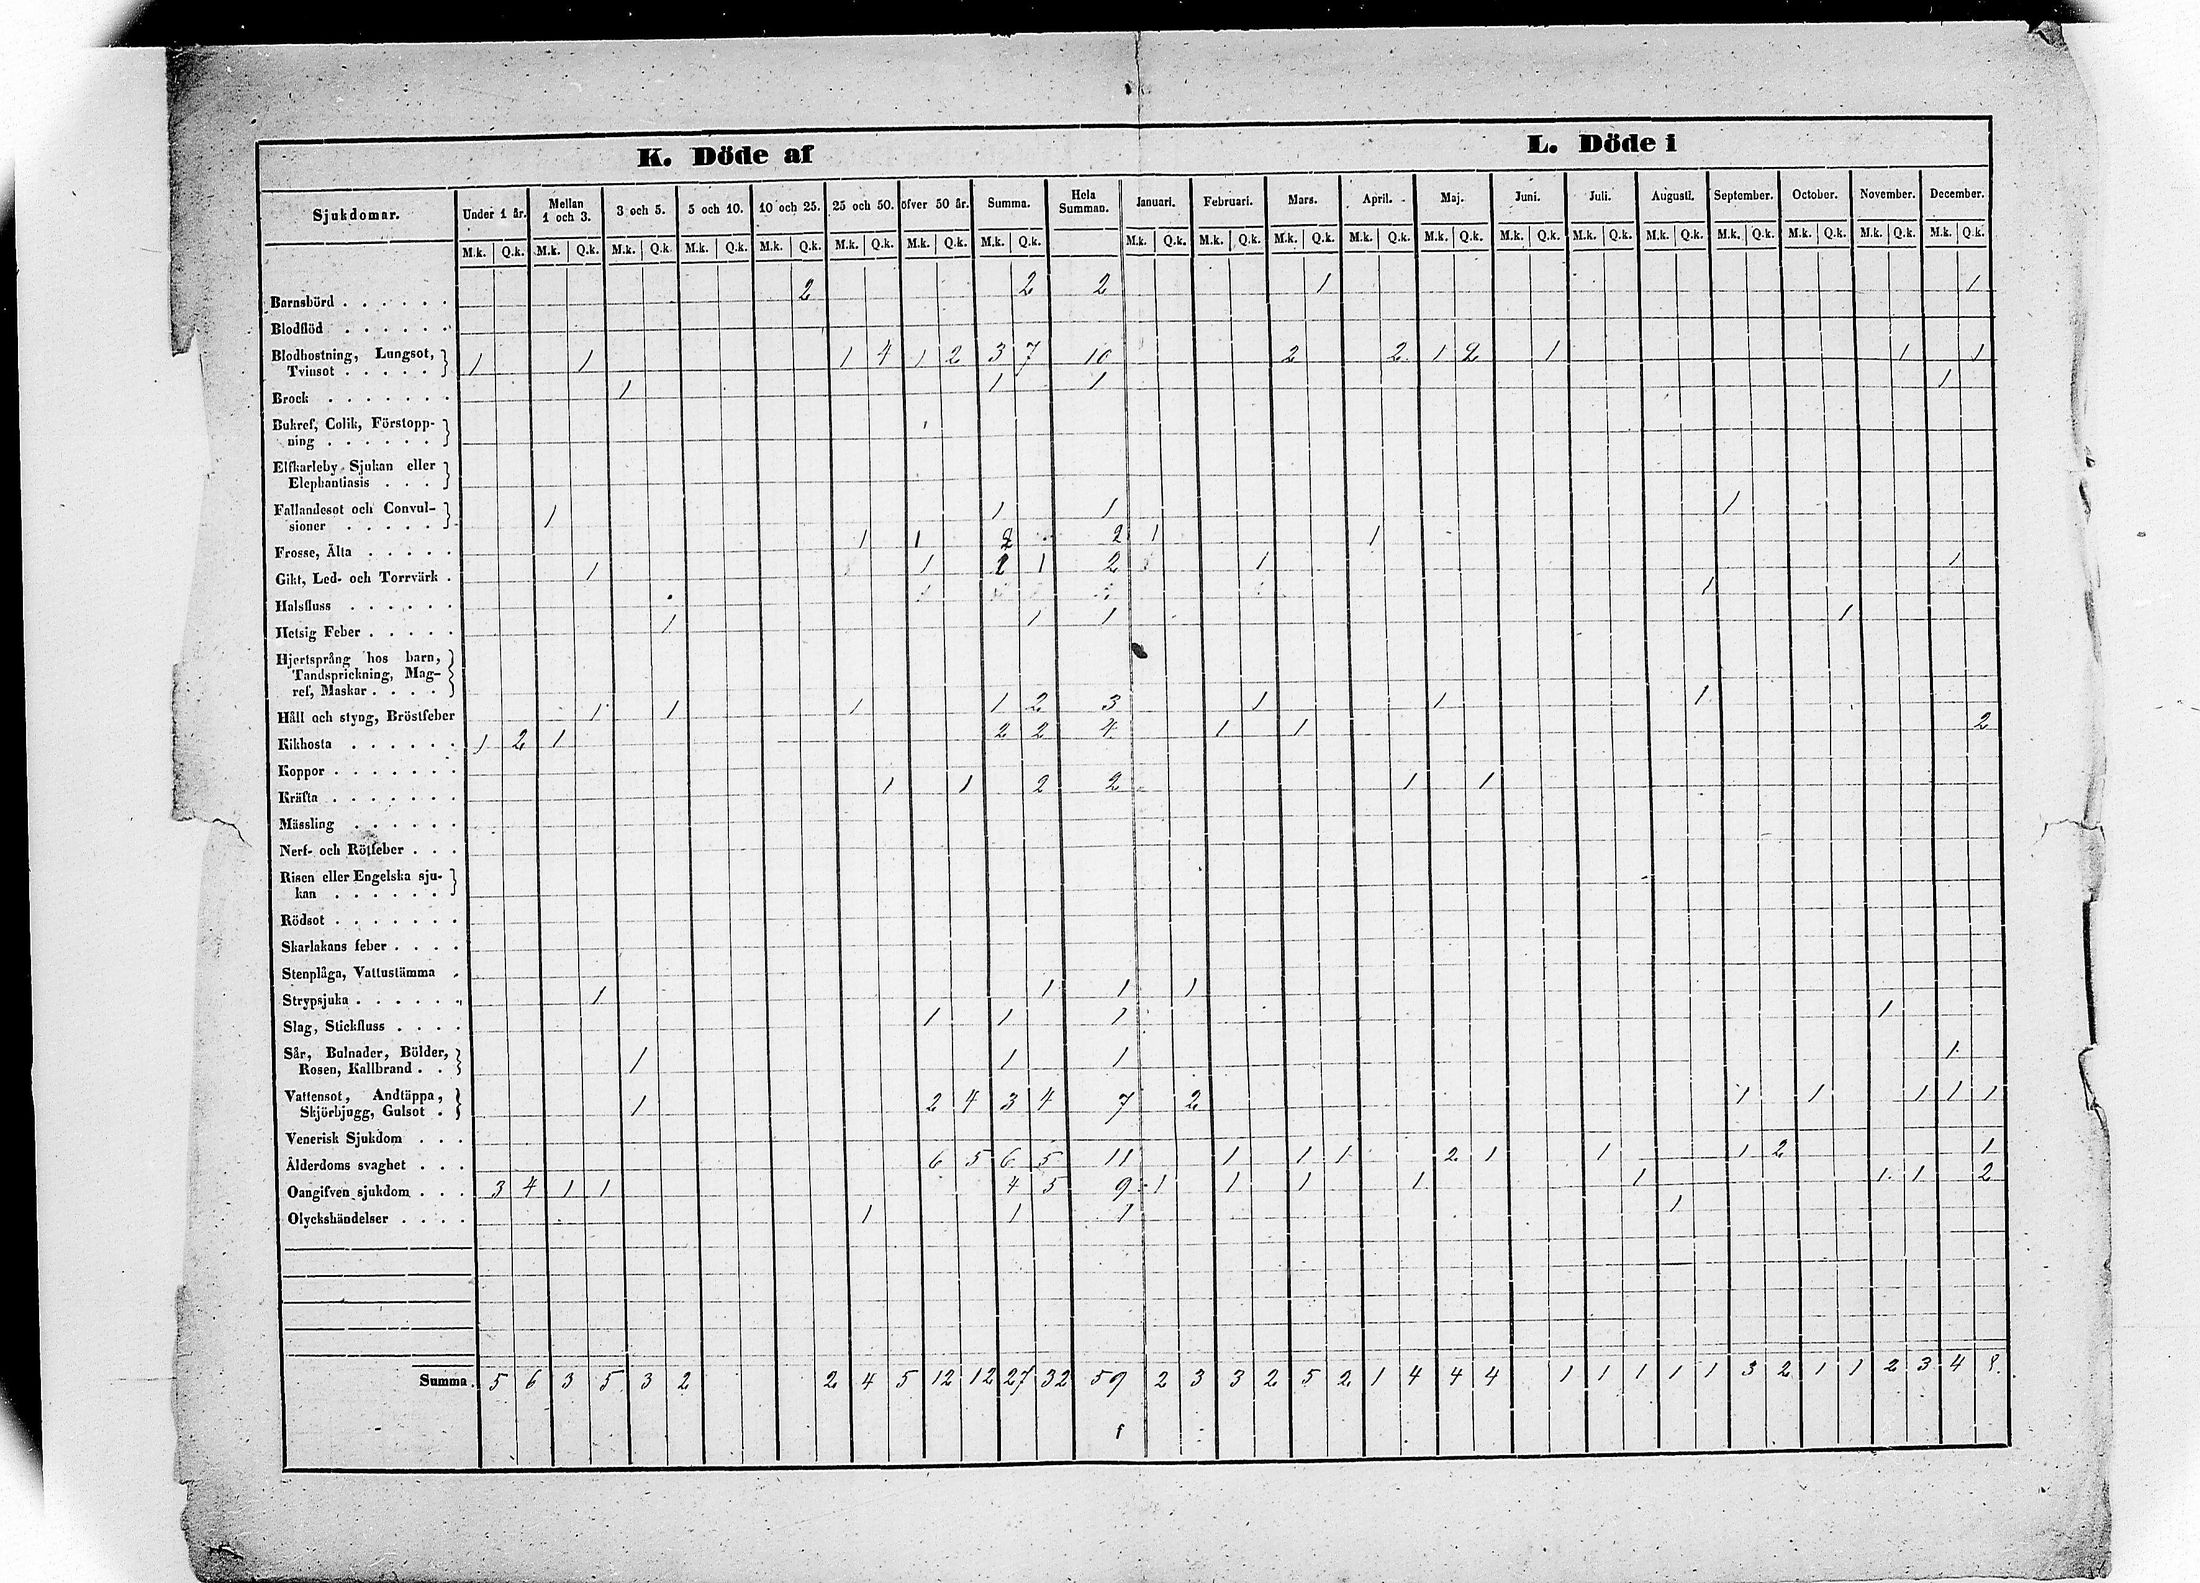 K. Döde af L. Döde i
Sjukdomar. Under 1 år. Mellan 1 och 3. 3 och 5. 5 och 10. 10 och 25. 25 och 50. öfver 50 år. Summa. Hela Summan. Januari. Februari. Mars. April. Maj. Juni. Juli. Augusti. September. October. November. December.
M.k. Q.k. M.k. Q.k. M.k. Q.k. M.k. Q.k. M.k. Q.k. M.k. Q.k. M.k. Q.k. M.k. Q.k. M.k. Q.k. M.k. Q.k. M.k. Q.k. M.k. Q.k. M.k. Q.k. M.k. Q.k. M.k. Q.k. M.k. Q.k. M.k. Q.k. M.k. Q.k. M.k. Q.k. M.k. Q.k.
Barnsbörd . . . . . . 2 2 2 1 1
Blodflöd . . . . . .
Blodhostning, Lungsot,
Tvinsot . . . . . 1 1 1 4 1 2 3 7 10 2 2 1 2 1 1 1
Brock . . . . . . . 1 1 1 1
Bukref, Colik, Förstopp-
ning . . . . . .
Elfkarleby Sjukan eller
Elephantiasis . . .
Fallandesot och Convul-
sioner . . . . . 1 1 1 1
Frosse, Älta . . . . . 1 1 2 2 1 1
Gikt, Led- och Torrvärk . 1 1 2 1 2 1 1
Halsfluss . . . . . . 1
Hetsig Feber . . . . . 1 1 1 1
Hjertsprång hos barn,
Tandsprickning, Mag-
ref, Maskar . . . .
Håll och styng, Bröstfeber 1 1 1 1 2 3 1 1 1
Kikhosta . . . . . . 1 2 1 2 2 4 1 1 2
Koppor . . . . . . .
Kräfta . . . . . . . 1 1 2 2 1 1
Mässling . . . . . .
Nerf- och Rötfeber . . .
Risen eller Engelska sju-
kan . . . . . .
Rödsot . . . . . . .
Skarlakans feber . . . .
Stenplåga, Vattustämma .
Strypsjuka . . . . . . 1 1 1 1
Slag, Stickfluss . . . . 1 1 1 1
Sår, Bulnader, Bölder,
Rosen, Kallbrand . . 1 1 1 1
Vattensot, Andtäppa,
Skjörbjugg, Gulsot . 1 2 4 3 4 7 2 1 1 1 1 1
Venerisk Sjukdom . . .
Ålderdoms svaghet . . . 6 5 6 5 11 1 1 1 2 1 1 1 2 1
Oangifven sjukdom . . . 3 4 1 1 4 5 9 1 1 1 1 1 1 1 2
Olyckshändelser . . . . 1 1 1 1
Summa. 5 6 3 5 3 2 2 4 5 12 12 27 32 59 2 3 3 2 5 2 1 4 4 4 1 1 1 1 1 3 2 1 1 2 3 4 8